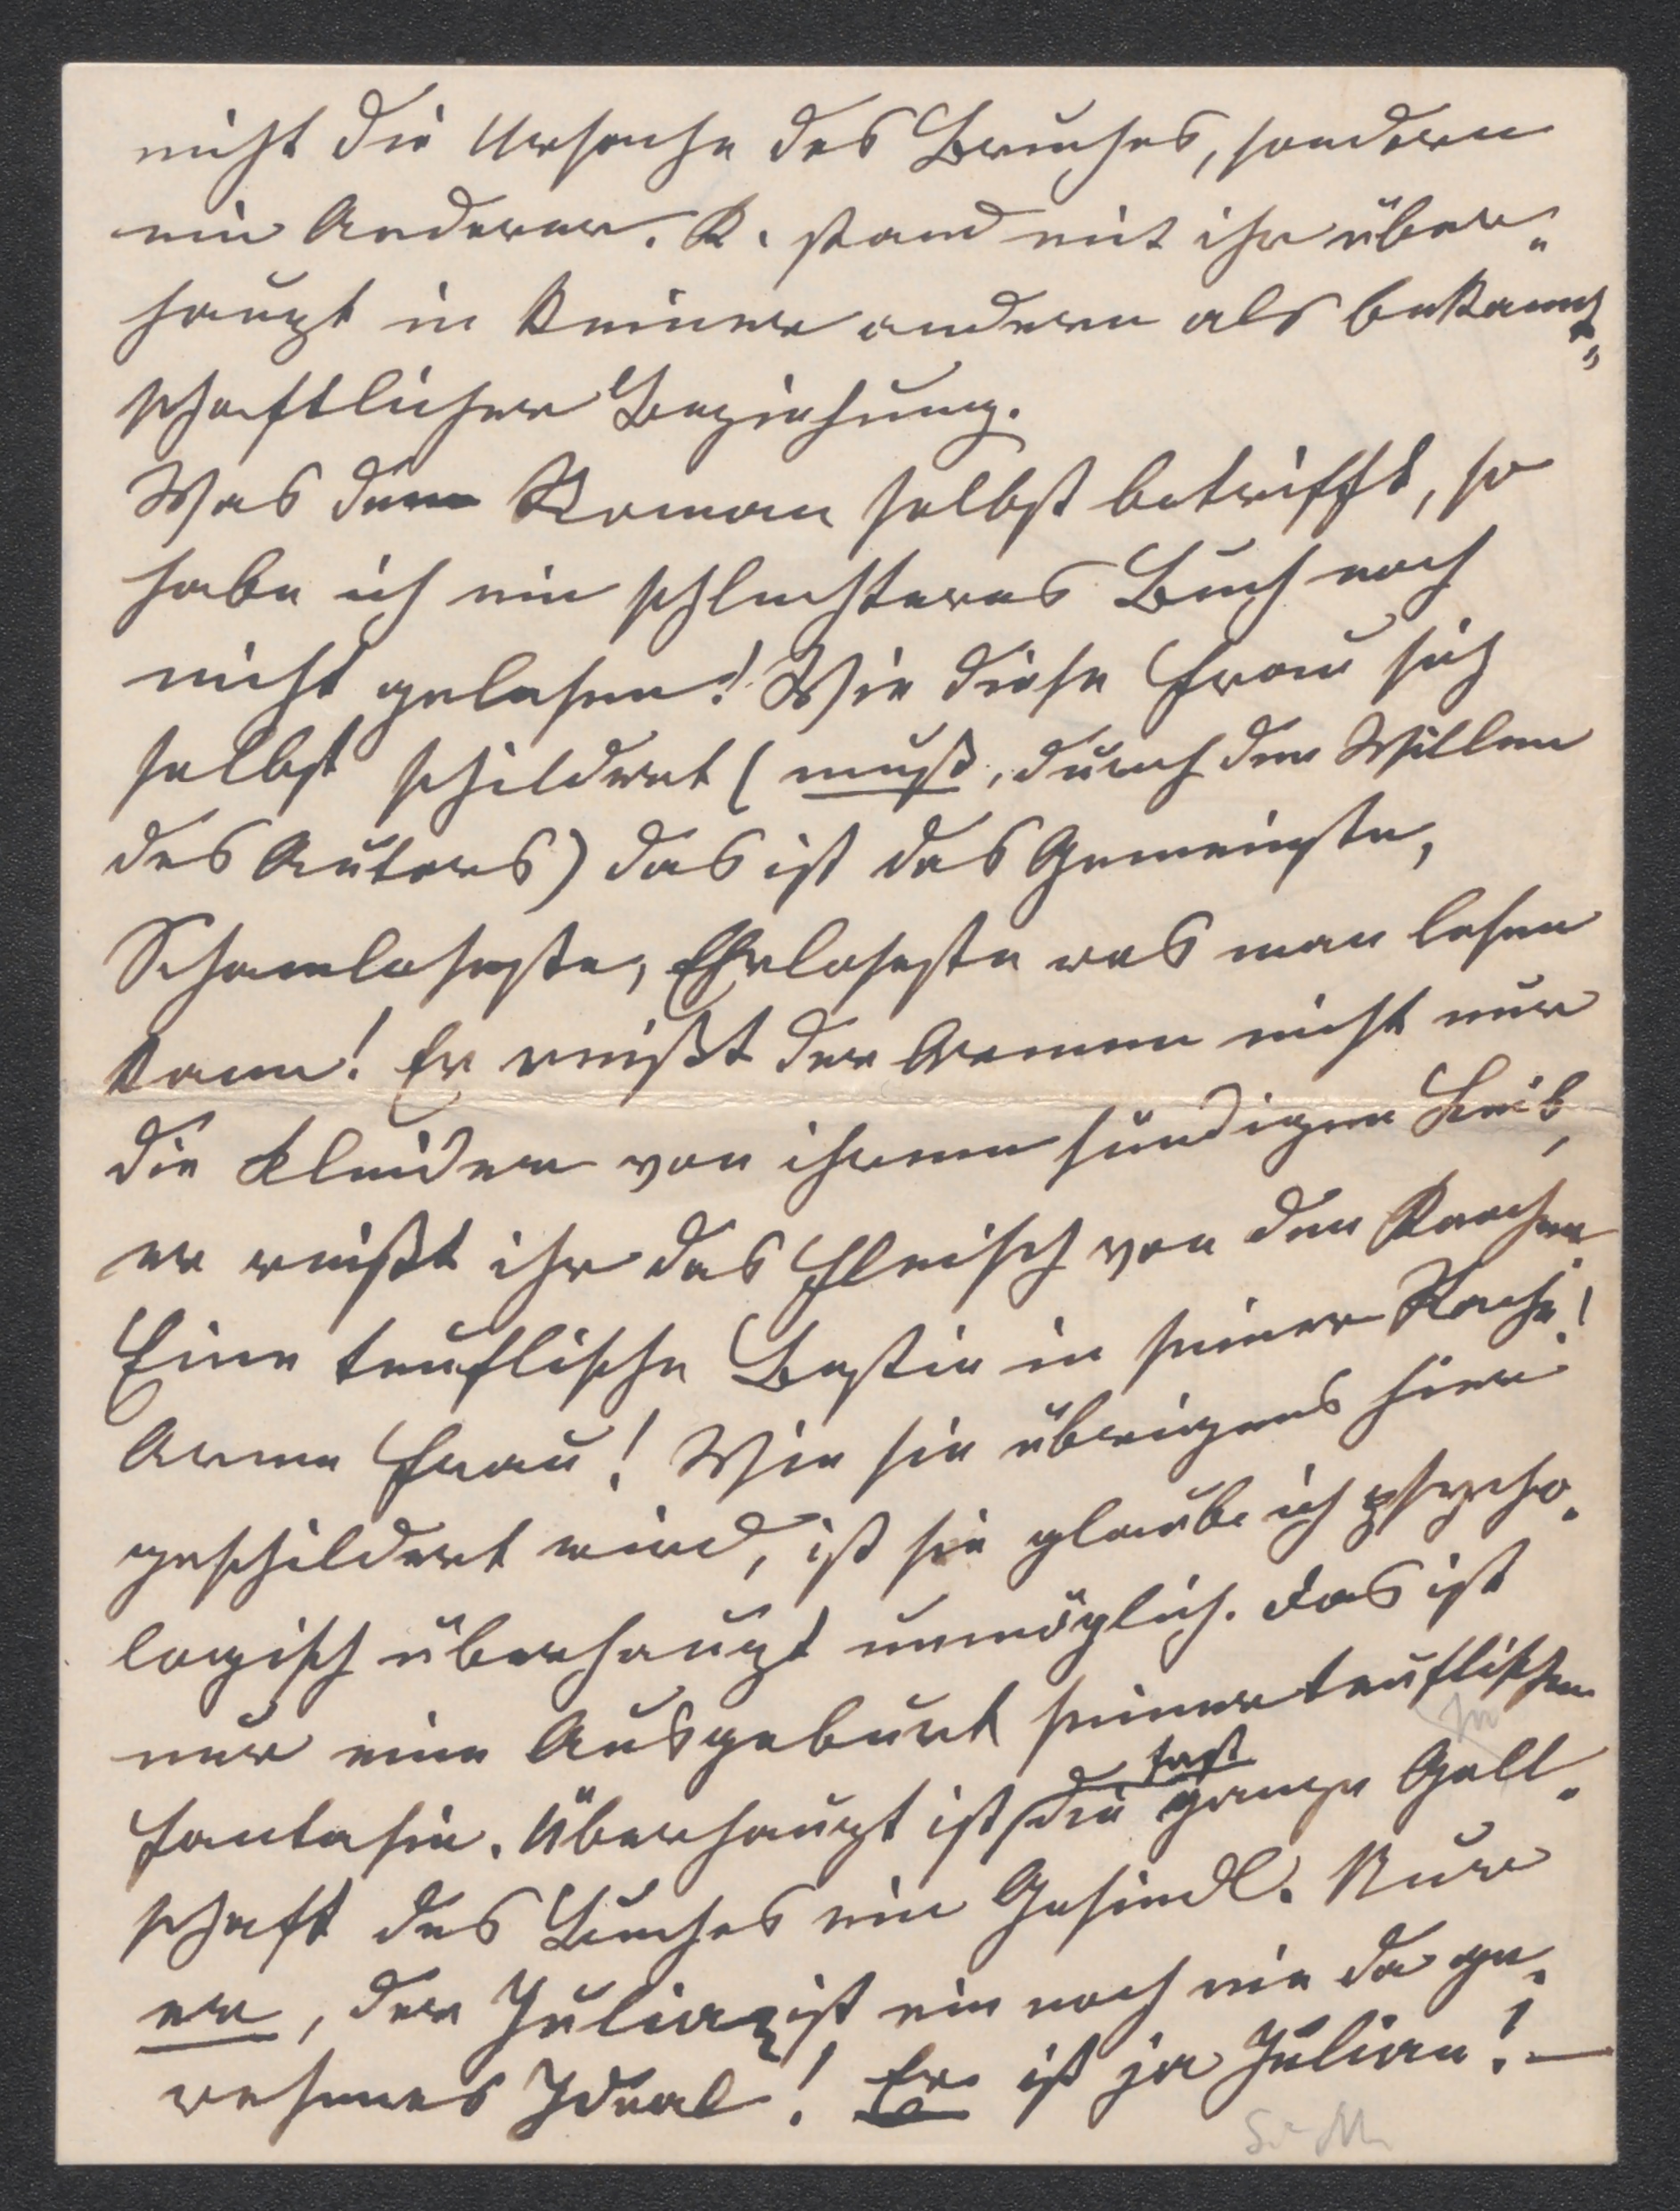 nicht die Ursache des Bruches, sondern
ein Anderer. K. stand mit ihr über-
haupt in keiner andern als bekannt-
schaftlicher Beziehung.
Was den Roman selbst betrifft, so
habe ich ein schlechteres Buch noch
nicht gelesen! Wie diese Frau sich
selbst schildert (muß, durch den Willen
des Autors) das ist das Gemeinste,
Schamloseste, Ehrloseste was man lesen
kann! Er reißt der Armen nicht nur
die Kleider von ihrem sündigen Leib,
er reißt ihr das Fleisch von den Knochen
Eine teuflische Bestie in seiner Rache!
Arme Frau! Wie sie übrigens hier
geschildert wird, ist sie glaube ich psycho-
logisch überhaupt unmöglich. Das ist
nur eine Ausgeburt seiner teuflischen
Fantasie. Überhaupt ist fast die ganze Gsell-
schaft des Buches ein Gesindl. Nur
er, der Julian ist ein noch nie da ge-
wesenes Ideal! Er ist ja Julian! —